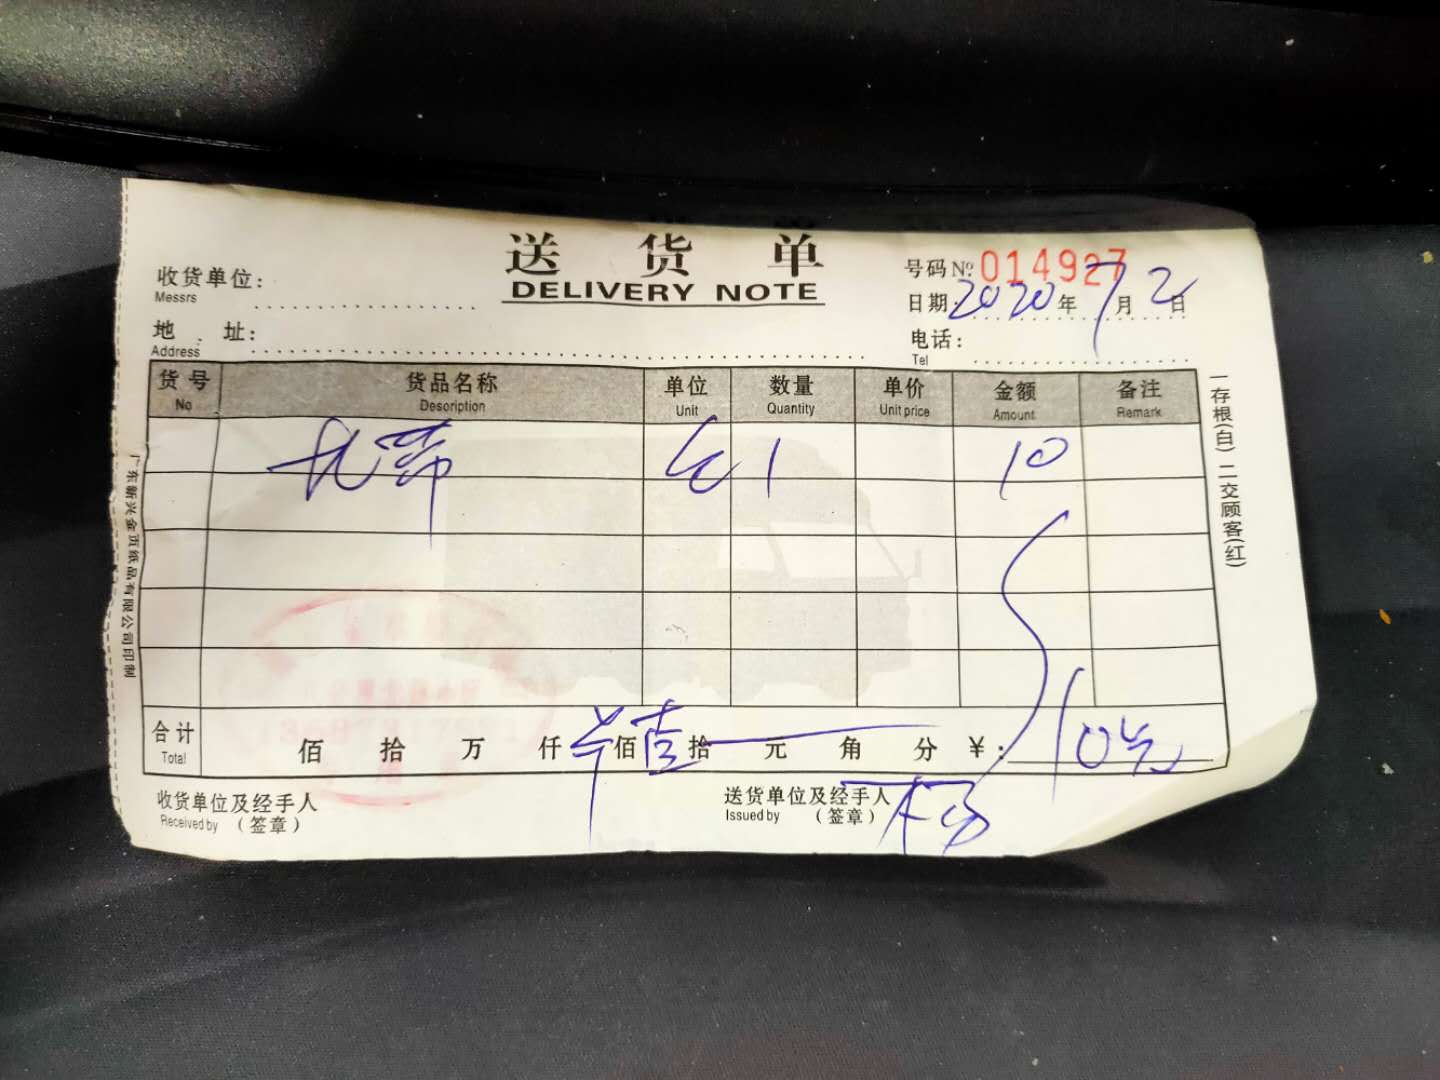 送货单
DELIVERY NOTE
号码 № 014927
收货单位：
Messrs
日期：2020年7月2日
地 址：
Address
电话：
Tel
货号 货品名称 单位 数量 单价 金额 备注
No Desoription Unit Quantity Unit price Amount Remark
扎带 包 1 10
合计 佰 拾 万 仟 佰 壹拾 元 角 分 ￥：10元
Total
收货单位及经手人 送货单位及经手人
Received by （签章） Issued by （签章）
一存根(白) 二交顾客(红)
广东新兴金页纸品有限公司印制